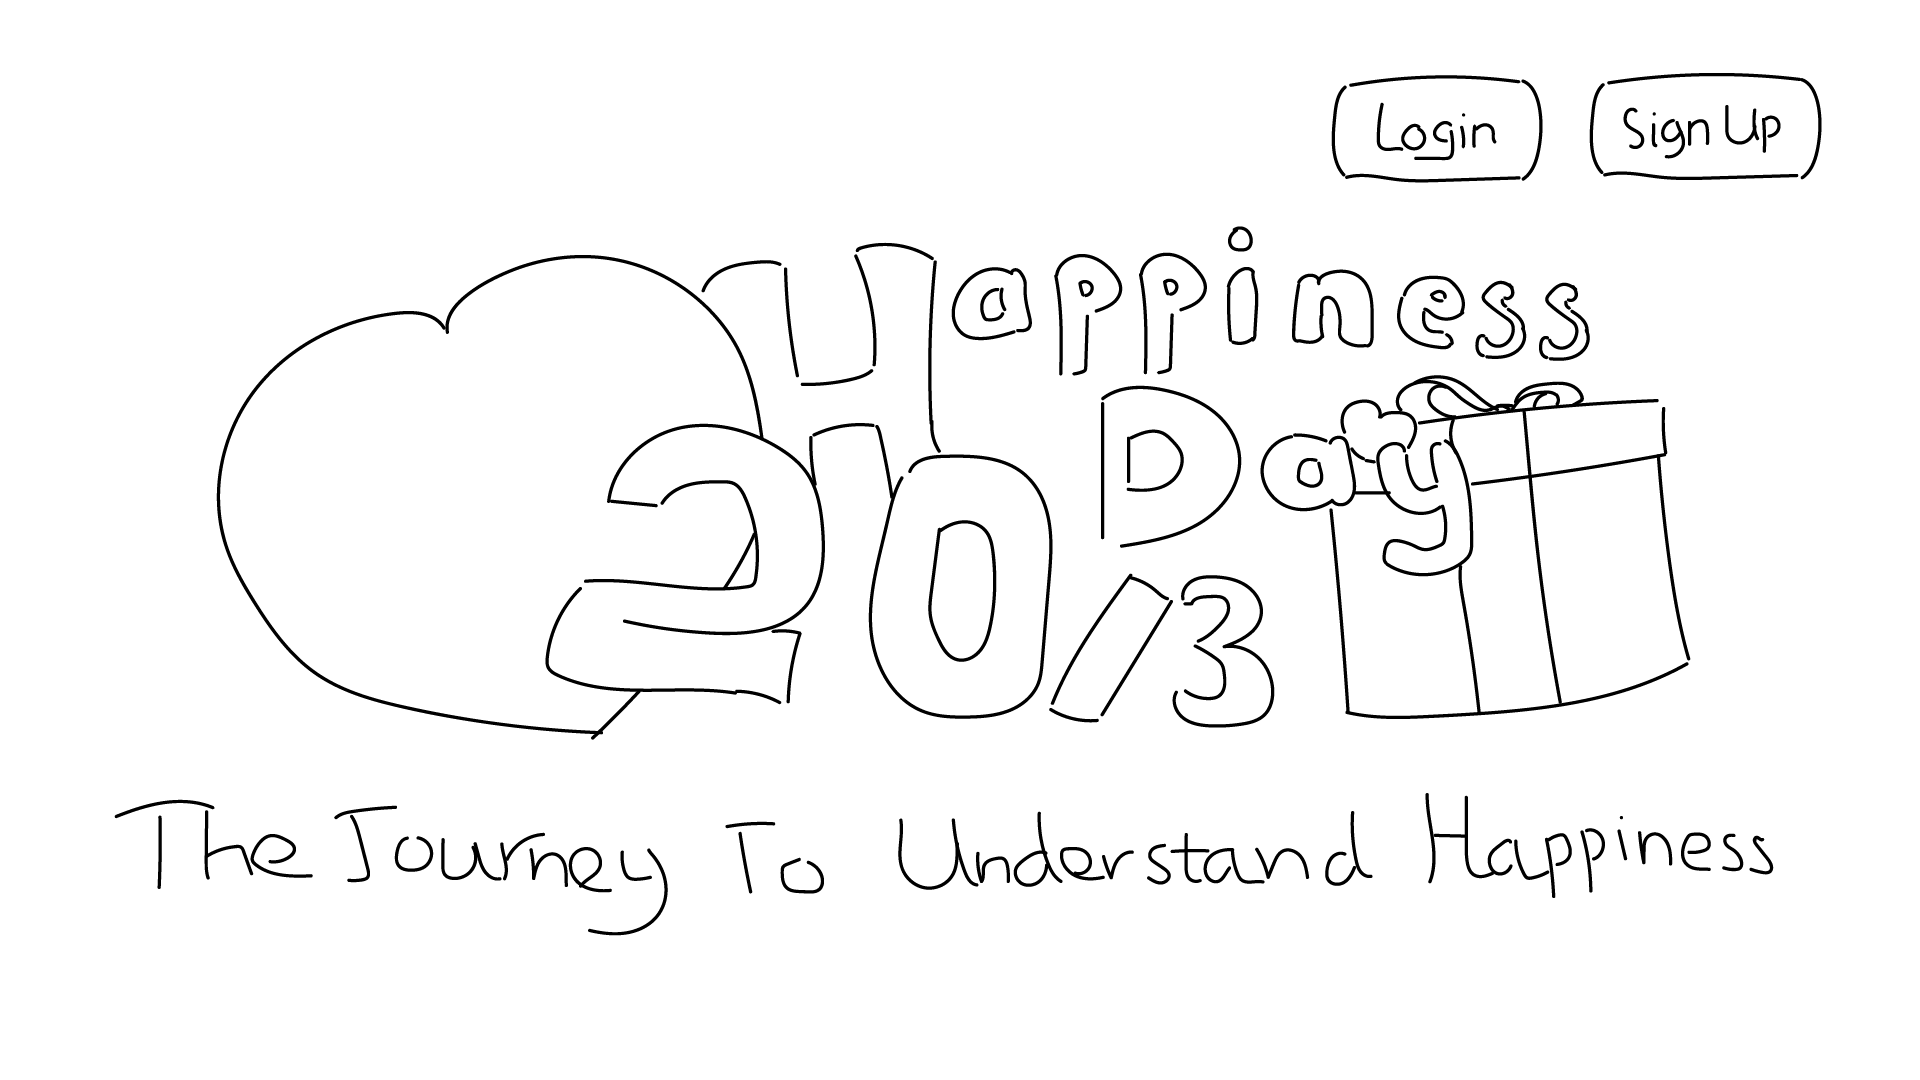 Login
Sign Up
Happiness
Day
20/3
The Journey To Understand Happiness